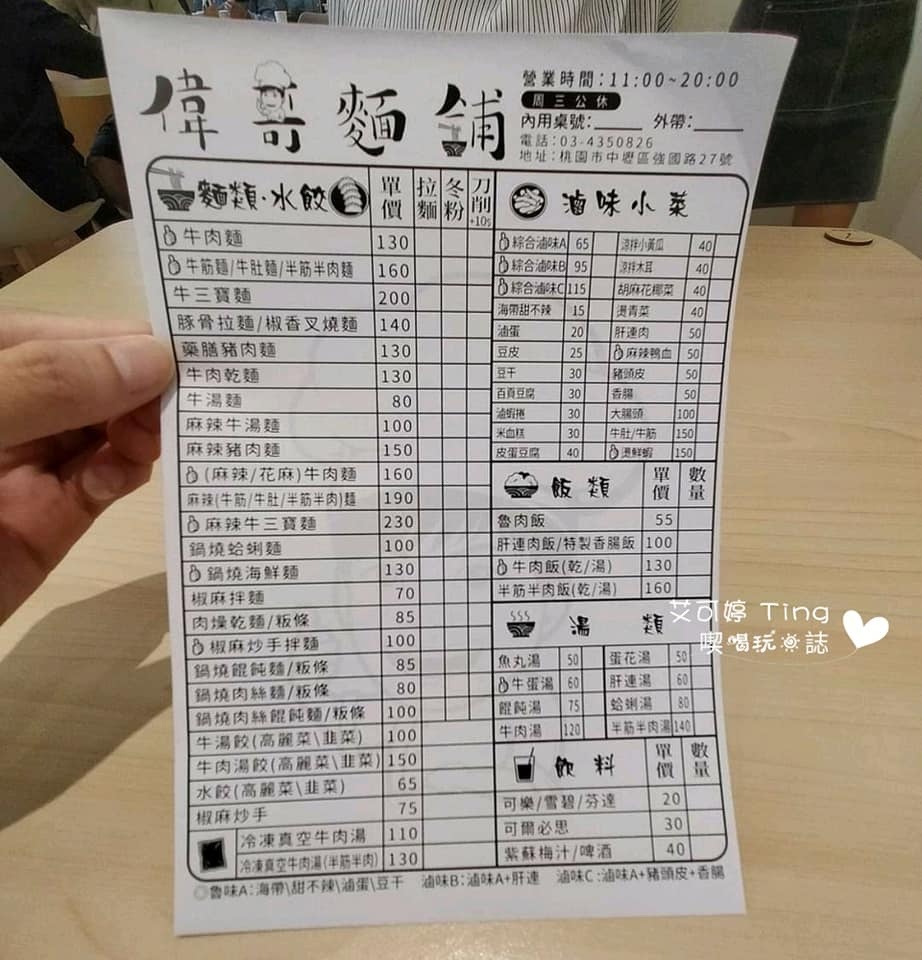 偉哥麵舖
營業時間:11:00~20:00
周三公休
內用桌號:_____ 外帶:_____
電話:03-4350826
地址:桃園市中壢區強國路27號
麵類·水餃 單價 拉麵 冬粉 刀削+10$
牛肉麵 130
牛筋麵/牛肚麵/半筋半肉麵 160
牛三寶麵 200
豚骨拉麵/椒香叉燒麵 140
藥膳豬肉麵 130
牛肉乾麵 130
牛湯麵 80
麻辣牛湯麵 100
麻辣豬肉麵 150
(麻辣/花麻)牛肉麵 160
麻辣(牛筋/牛肚/半筋半肉)麵 190
麻辣牛三寶麵 230
鍋燒蛤蜊麵 100
鍋燒海鮮麵 130
椒麻拌麵 70
肉燥乾麵/粄條 85
椒麻炒手拌麵 100
鍋燒餛飩麵/粄條 85
鍋燒肉絲麵/粄條 80
鍋燒肉絲餛飩麵/粄條 100
牛湯餃(高麗菜\韭菜) 100
牛肉湯餃(高麗菜\韭菜) 150
水餃(高麗菜\韭菜) 65
椒麻炒手 75
冷凍真空牛肉湯 110
冷凍真空牛肉湯(半筋半肉) 130
滷味小菜
綜合滷味A 65 涼拌小黃瓜 40
綜合滷味B 95 涼拌木耳 40
綜合滷味C 115 胡麻花椰菜 40
海帶甜不辣 15 燙青菜 40
滷蛋 20 肝連肉 50
豆皮 25 麻辣鴨血 50
豆干 30 豬頭皮 50
百頁豆腐 30 香腸 50
滷蝦捲 30 大腸頭 100
米血糕 30 牛肚/牛筋 150
皮蛋豆腐 40 燙鮮蝦 150
飯類 單價 數量
魯肉飯 55
肝連肉飯/特製香腸飯 100
牛肉飯(乾/湯) 130
半筋半肉飯(乾/湯) 160
湯類
魚丸湯 50 蛋花湯 50
牛蛋湯 60 肝連湯 60
餛飩湯 75 蛤蜊湯 80
牛肉湯 120 半筋半肉湯 140
飲料 單價 數量
可樂/雪碧/芬達 20
可爾必思 30
紫蘇梅汁/啤酒 40
◎魯味A:海帶\甜不辣\滷蛋\豆干 滷味B:滷味A+肝連 滷味C:滷味A+豬頭皮+香腸
艾可婷 Ting
喫喝玩樂誌